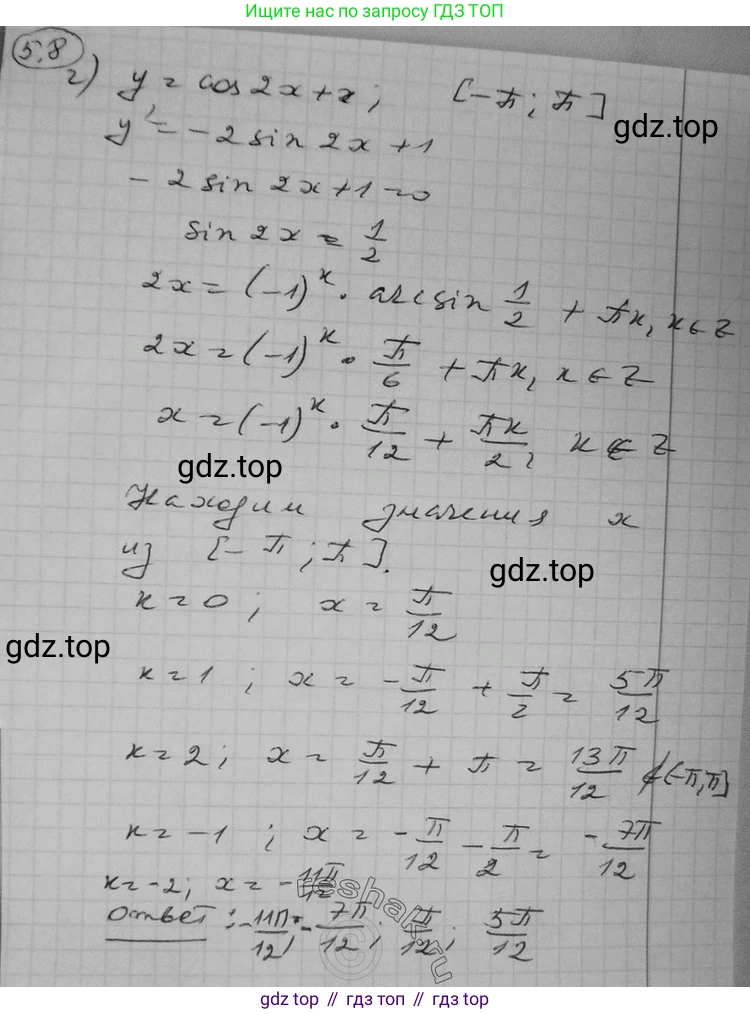 Ищите нас по запросу ГДЗ ТОП
5.8
г) y = cos 2x + x; [-π; π]
gdz.top
y' = -2 sin 2x + 1
-2 sin 2x + 1 = 0
sin 2x = 1/2
2x = (-1)^к · arcsin 1/2 + πк, к ∈ Z
2x = (-1)^к · π/6 + πк, к ∈ Z
x = (-1)^к · π/12 + πк/2, к ∈ Z
gdz.top
Находим значения x
из [-π; π].
gdz.top
к = 0; x = π/12
gdz.top
к = 1; x = -π/12 + π/2 = 5π/12
к = 2; x = π/12 + π = 13π/12 ∉ [-π, π]
к = -1; x = -π/12 - π/2 = -7π/12
к = -2; x = -11π/12
reshak.ru
Ответ: -11π/12; -7π/12; π/12; 5π/12
gdz.top // гдз топ // gdz.top